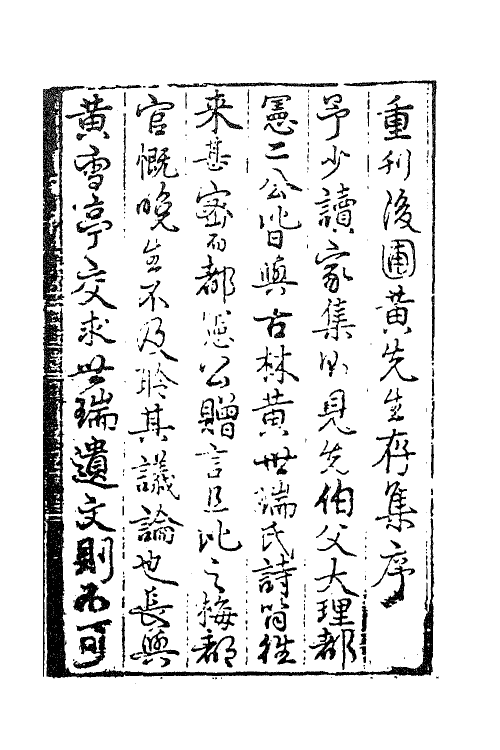 重刊後圃黄先生存集序
予少讀家集得見先伯父大理都
憲二公皆與古林黄世瑞氏詩筒徃
来甚密而都憲公贈言且比之梅都
官慨晚生不及聆其議論也長與
黄雪亭交求世瑞遺文則不可